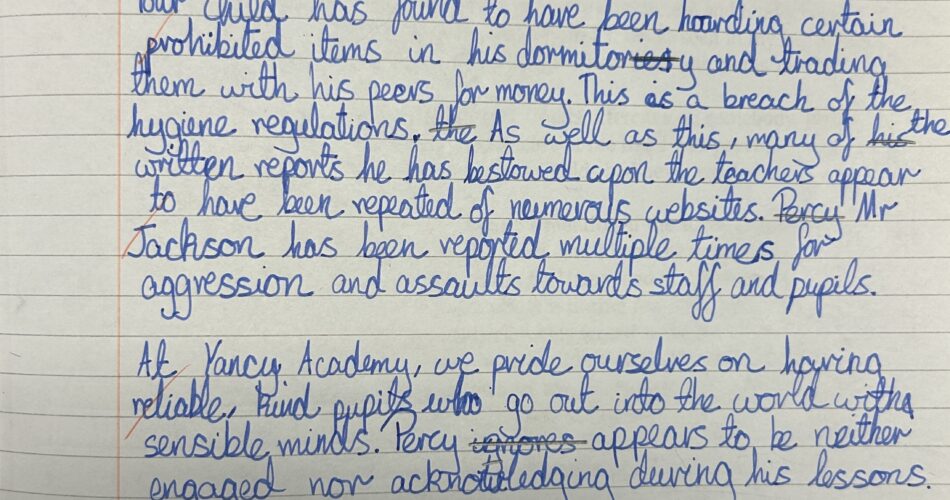 Your child has found to have been hoarding certain
prohibited items in his dormitory and trading
them with his peers for money. This is a breach of the
hygiene regulations. the As well as this, many of his the
written reports he has bestowed upon the teachers appear
to have been repeated of numerous websites. Percy Mr
Jackson has been reported multiple times for
aggression and assaults towards staff and pupils.
At Yancy Academy, we pride ourselves on having
reliable, kind pupils who go out into the world with
sensible minds. Percy ignores appears to be neither
engaged nor acknowledging during his lessons.